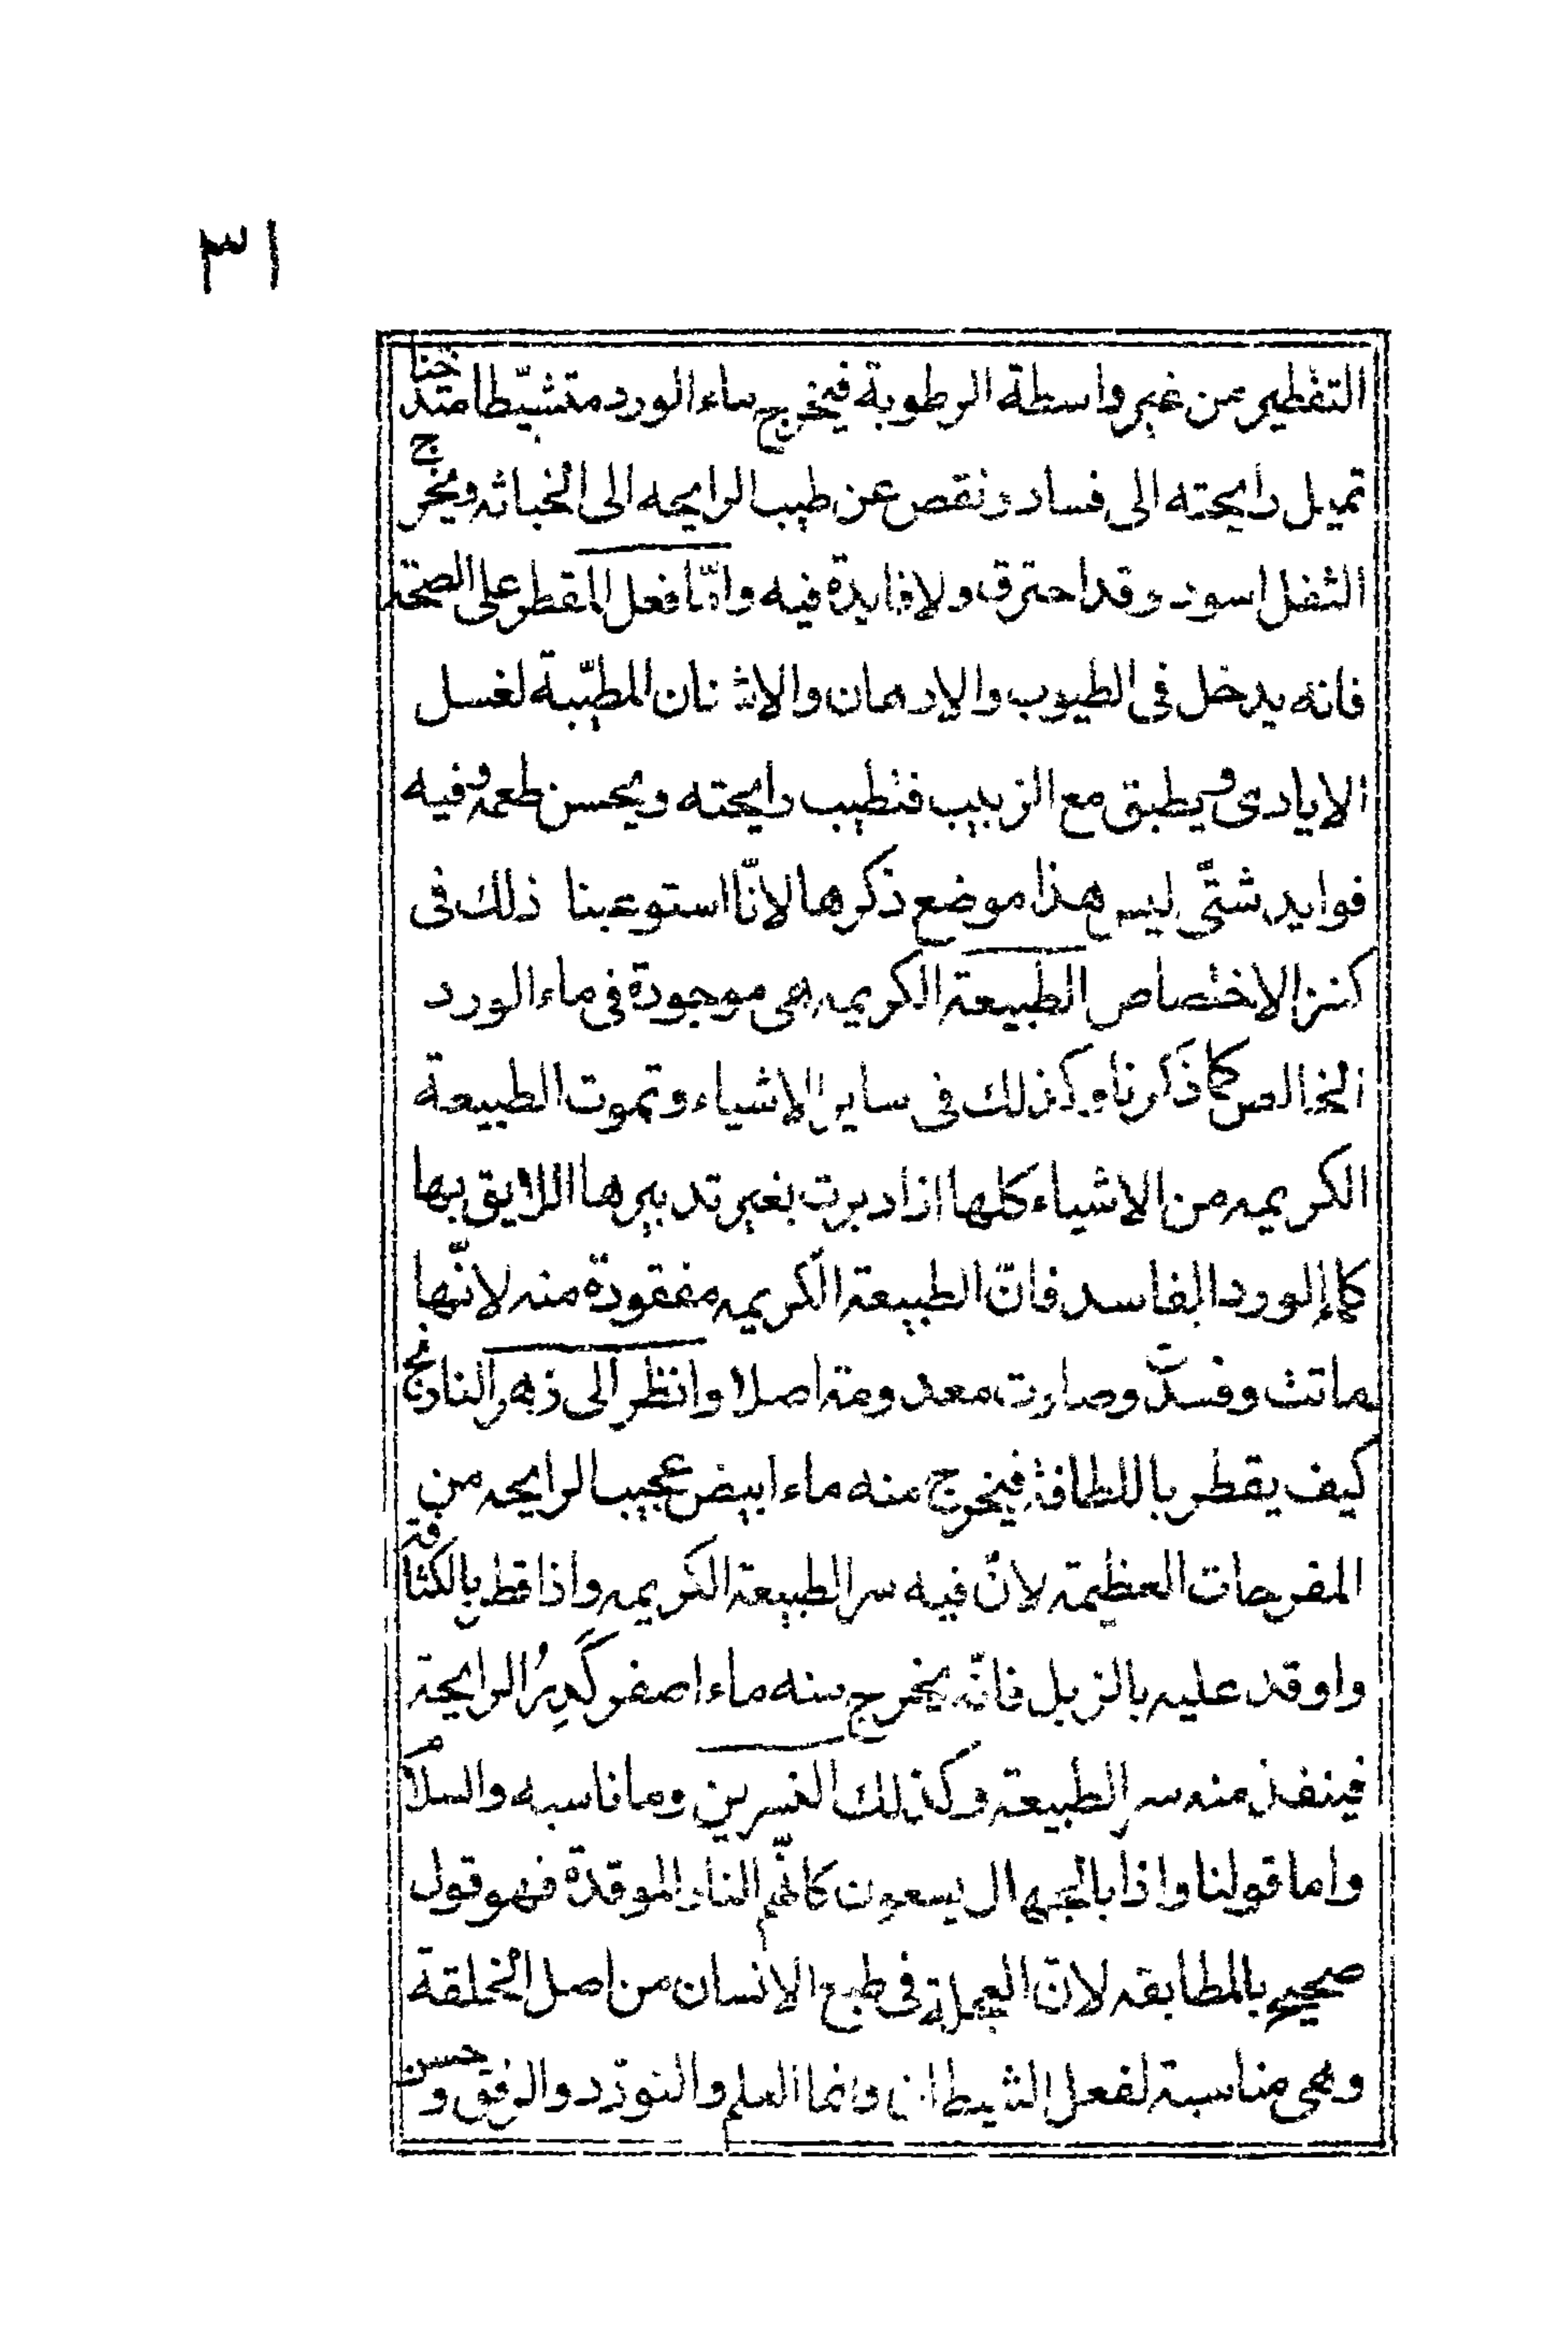 ٣١
التقطير من غير واسطة الرطوبة فيخرج ماء الورد متشيّطا متدخنا
تميل رايحته الى فساد ونقص عن طيب الرايحه الى الخباثه ويخرج
الثفل اسود وقد احترق ولا فايدة فيه وامّا فعل المقطر على الصحّة
فانه يدخل فى الطيوب والادهان والاشنان المطيّبة لغسل
الايادى ويطبق مع الزبيب فتطيب رايحته ويحسن طعمه وفيه
فوايد شتّى ليس هذا موضع ذكرها لانّا استوعبنا ذلك فى
كنز الاختصاص الطبيعة الكريمه هى موجودة فى ماء الورد
الخالص كما ذكرنا وكذلك فى ساير الاشياء وتموت الطبيعة
الكريمه من الاشياء كلها اذا دبرت بغير تدبيرها اللايق بها
كماء الورد الفاسد فانّ الطبيعة الكريمه مفقودة منه لانّها
ماتت وفسدت وصارت معدومة اصلا وانظر الى زهر النارنج
كيف يقطر باللطافة فيخرج منه ماء ابيض عجيب الرايحه من
المفرحات العظيمة لانّ فيه سر الطبيعة الكريمه واذا قطر بالكثافة
واوقد عليه بالزبل فانّه يخرج منه ماء اصفر كَدِرُ الرايحة
فينفذ منه سر الطبيعة وكذلك النسرين وما ناسبه والسلام
واما قولنا واذا بالجهال يسعون كانّهم النار الموقدة فهو قول
صحيح بالمطابقه لانّ العجلة فى طبع الانسان من اصل الخلقة
وهى مناسبة لفعل الشيطان وانما العلم والتودّد والرفق وحسن